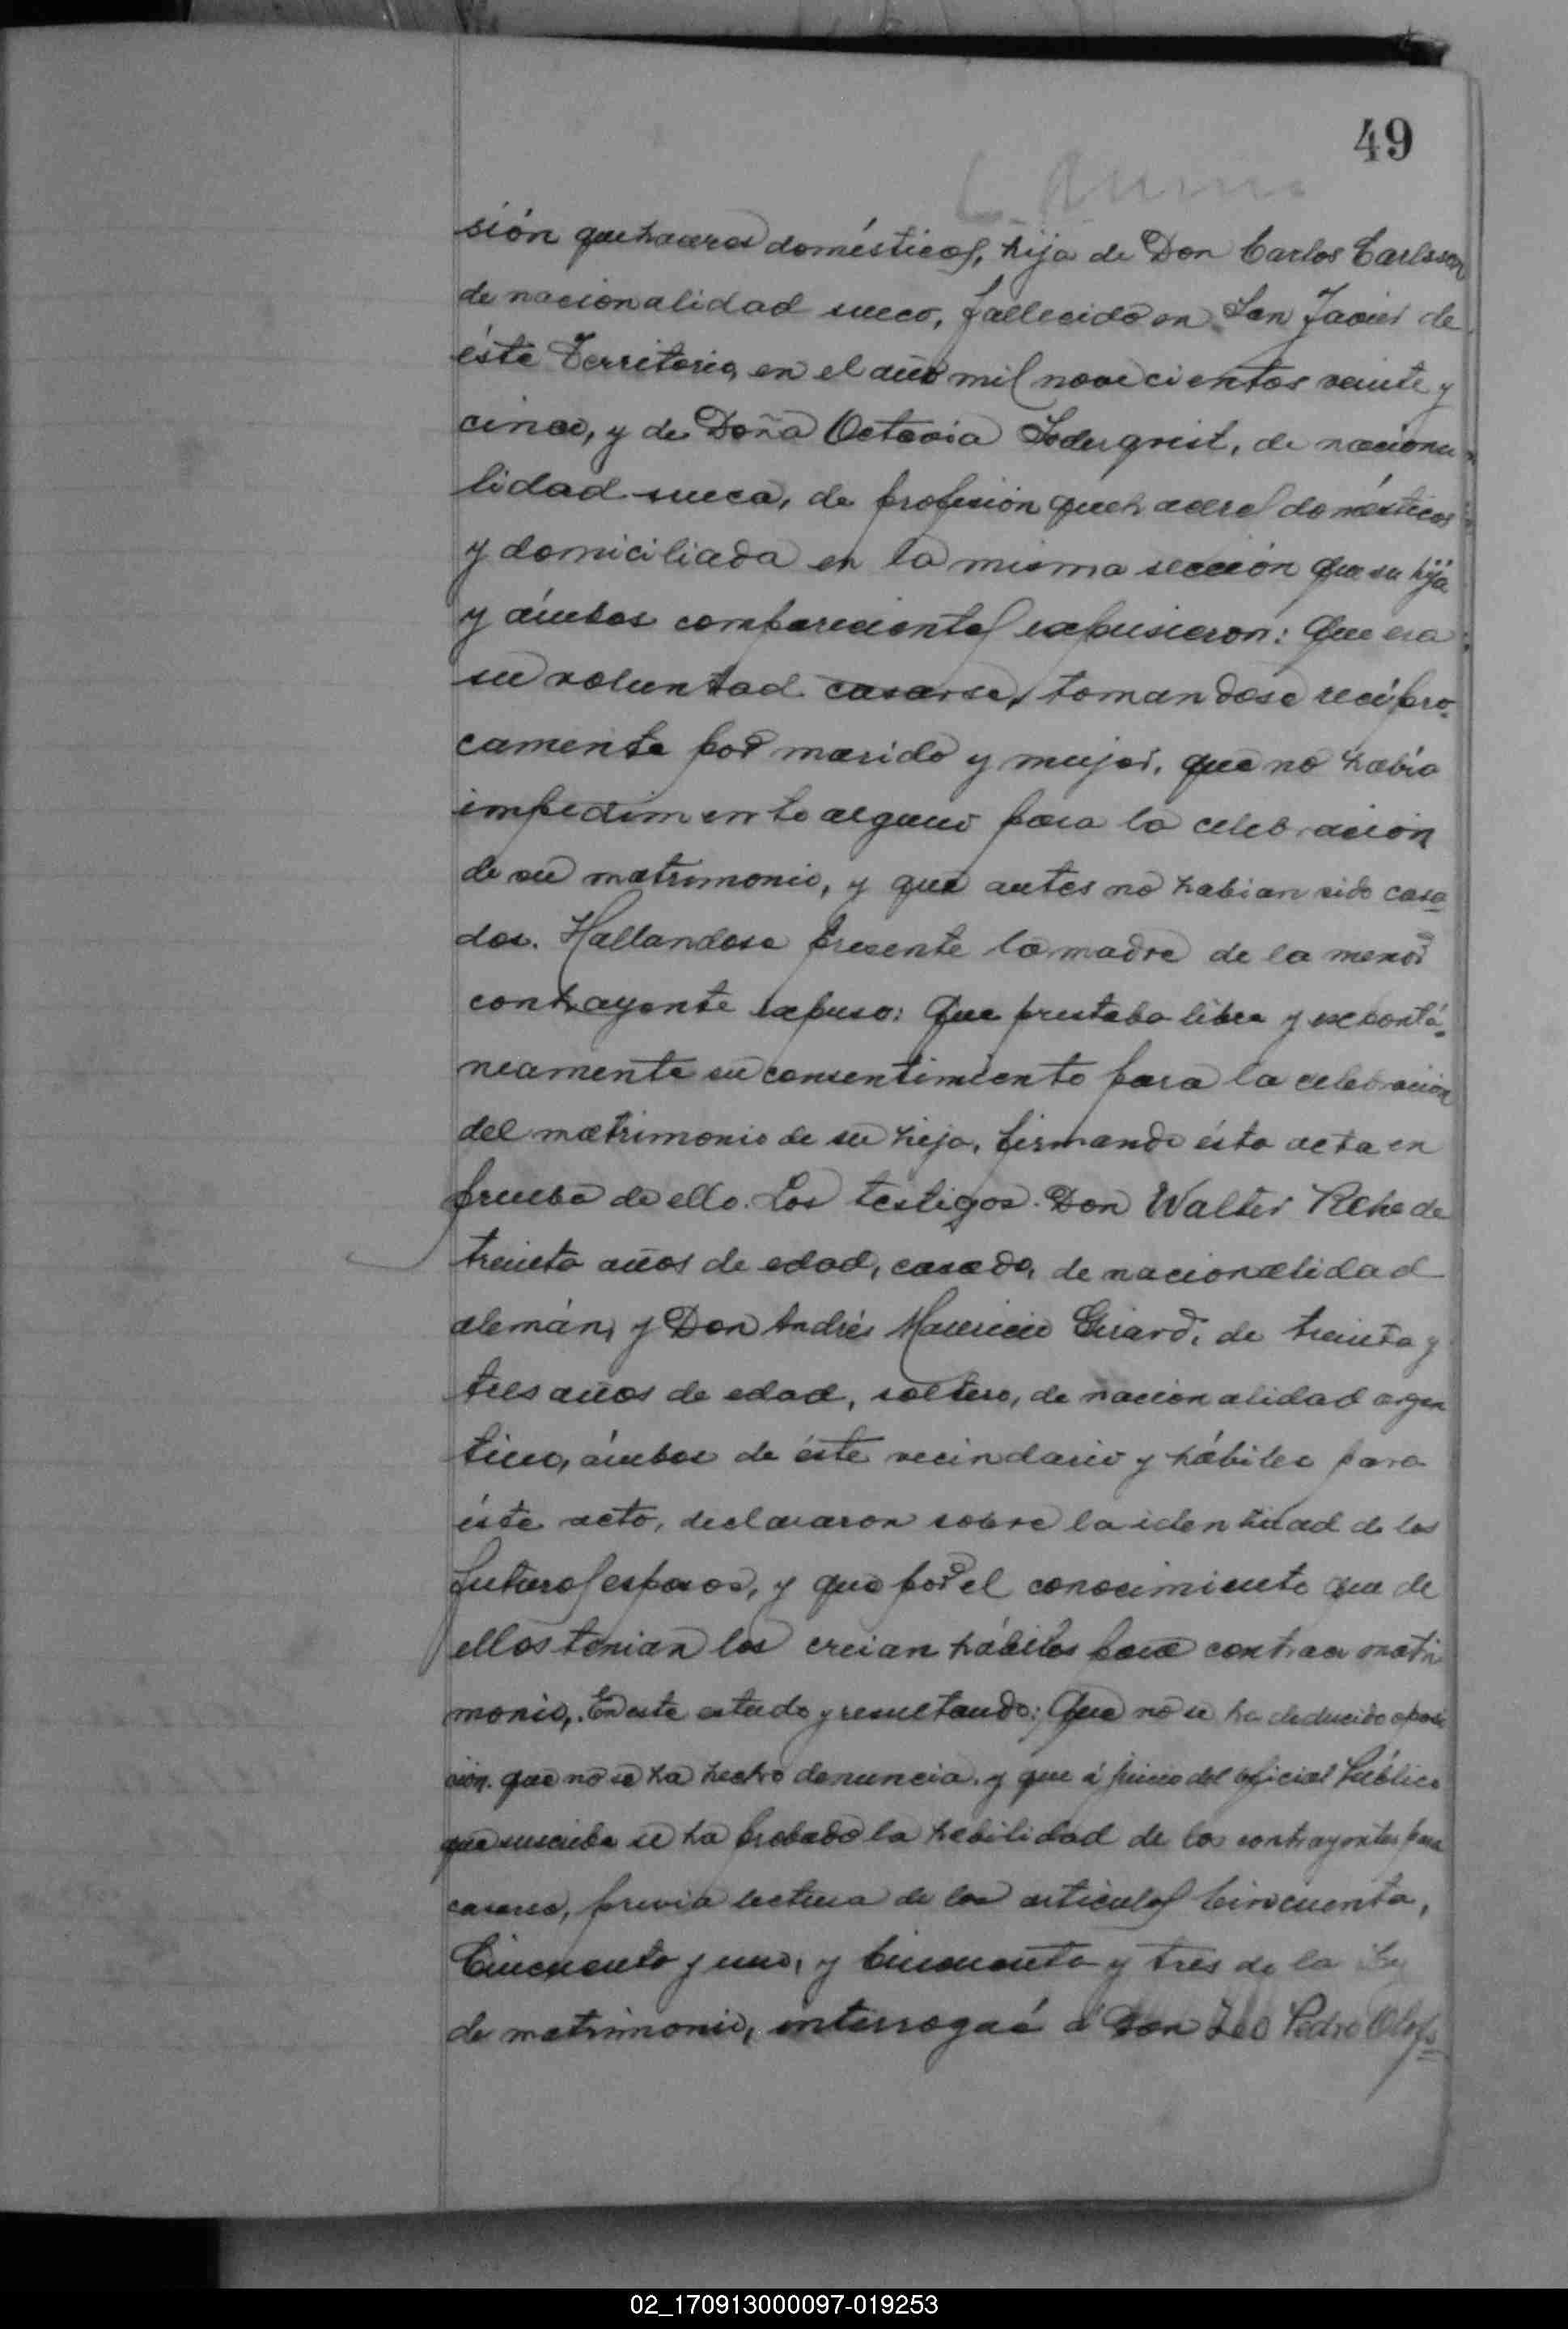 49
sión quehaceres domésticos, hija de Don Carlos Carlsson
de nacionalidad sueco, fallecido en San Javier de
éste Territorio, en el año mil novecientos veinte y
cinco, y de Doña Octavia Soderqvist, de naciona
lidad sueca, de profesión quehaceres domésticos
y domiciliada en la misma sección que su hija
y ámbos comparecientes expusieron: Que era
su voluntad casarse, tomandose recípro-
camente por marido y mujer, que no había
impedimento alguno para la celebración
de su matrimonio, y que antes no habian sido casa-
dos. Hallandose presente la madre de la menor
contrayente expuso: Que prestaba libre y expontá-
neamente su consentimiento para la celebración
del matrimonio de su hija, firmando ésta acta en
prueba de ello. Los testigos. Don Walter Rehe de
treinta años de edad, casado, de nacionalidad
alemán, y Don Andrés Mauricio Girard, de treinta y
tres años de edad, soltero, de nacionalidad argen
tino, ámbos de éste vecindario y hábiles para
éste acto, declararon sobre la identidad de los
futuros esposos, y que por el conocimiento que de
ellos tenian los creian hábiles para contraer matri
monio,. En este estado y resultando: Que no se ha deducido oposi
ción. que no se ha hecho denuncia. y que á juicio del oficial Público
que suscribe se ha probado la habilidad de los contrayentes para
casarse, previa lectura de los articulos Cincuenta,
Cincuenta y uno, y Cincuenta y tres de la Ley
de matrimonio, interrogué á Don Leo Pedro Olofs-
02_170913000097-019253